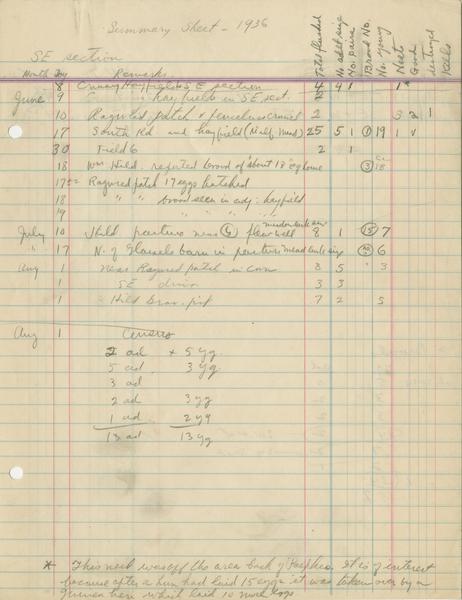 Summary Sheet - 1936
SE section
Month Day Remarks Total flushed No adult sing No. pairs Brood No. No. young Nest Good destroyed
8 Hayfields E section 4 4 1 1*
June 9 " " Hay fields in SE sect. 2
10 Ragweed patch & 2 3 2 1
17 South Rd and hayfield 25 5 1 1 19 1 v
30 Field 6 2 1
18 Wm Hild. reported brood of "about 18" 3 18
17 Ragweed patch 17 eggs hatched
18 " " brood seen in adj. hayfield
19 " " " "
July 10 Hild pasture near 6 8 1 15 7
" 17 N. of barn in pasture 6
Aug 1 near Ragweed patch in corn 8 5 3
1 SE 3 3
1 Hild pit 7 2 5
Aug 1 Census
2 ad + 5 yg.
5 ad 3 yg.
3 ad
2 ad 3 yg
1 ad 2 yg
13 ad 13 yg
* This nest was off the area back of . It is of interest
because after a hen had laid 15 eggs it was taken over by a
Guinea hen which laid 10 more eggs